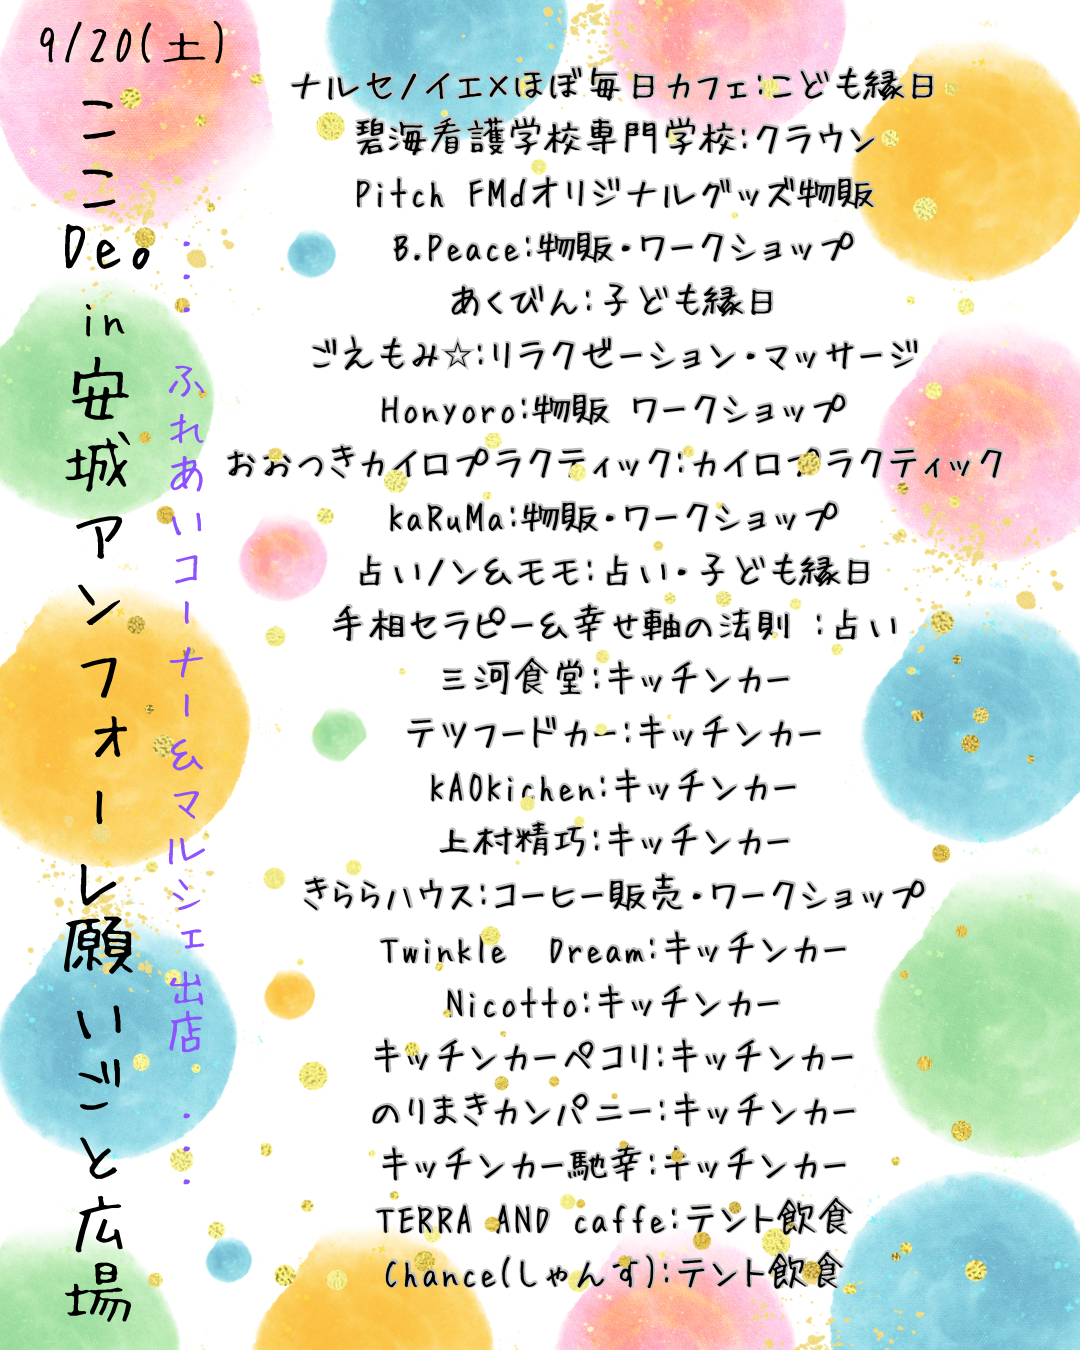 9/20(土)
ここ
De。
in
安城アンフォーレ願いごと広場
・・・ふれあいコーナー&マルシェ出店・・・
ナルセノイエ×ほぼ毎日カフェ:こども縁日
碧海看護学校専門学校:クラウン
Pitch FMdオリジナルグッズ物販
B.Peace:物販・ワークショップ
あくびん:子ども縁日
ごえもみ☆:リラクゼーション・マッサージ
Honyoro:物販 ワークショップ
おおつきカイロプラクティック:カイロプラクティック
kaRuMa:物販・ワークショップ
占いノン&モモ:占い・子ども縁日
手相セラピー&幸せ軸の法則 :占い
三河食堂:キッチンカー
テツフードカー:キッチンカー
kAOkichen:キッチンカー
上村精巧:キッチンカー
きららハウス:コーヒー販売・ワークショップ
Twinkle Dream:キッチンカー
Nicotto:キッチンカー
キッチンカーペコリ:キッチンカー
のりまきカンパニー:キッチンカー
キッチンカー馳幸:キッチンカー
TERRA AND caffe:テント飲食
Chance(しゃんす):テント飲食